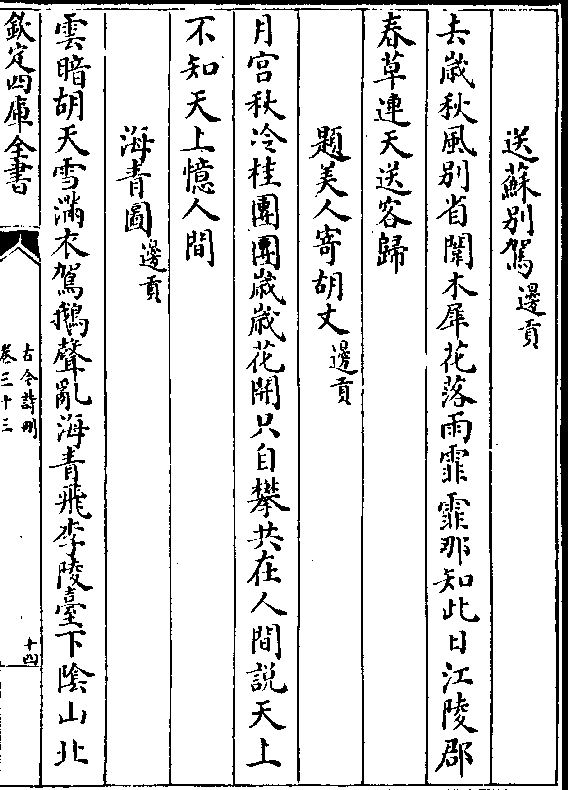 送蘇别駕邊貢
去歲秋風别省闈木犀花落雨霏霏那知此日江陵郡
春草連天送客歸
題美人寄胡丈邊貢
月宫秋冷桂團團歲歲花開只自攀共在人間説天上
不知天上憶人間
海青圖邊貢
雲暗胡天雪滿衣駕鵝聲亂海青飛李陵臺下陰山北
欽定四庫全書
古今詩刪
卷三十三
十四